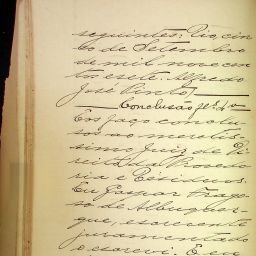 seguintes: Rio, cin
co de Setembro
de mil novecen
tos e sete. Alfredo
José Pinto.
Conclusão
Eos faço conclu
sos ao meretis-
simo Juiz de Di-
reito da Provedo
ria e Residuos.
Eu Gaspar Frago
so de Albuquer-
que, escrevente
juramentado
o escrevi. E eu